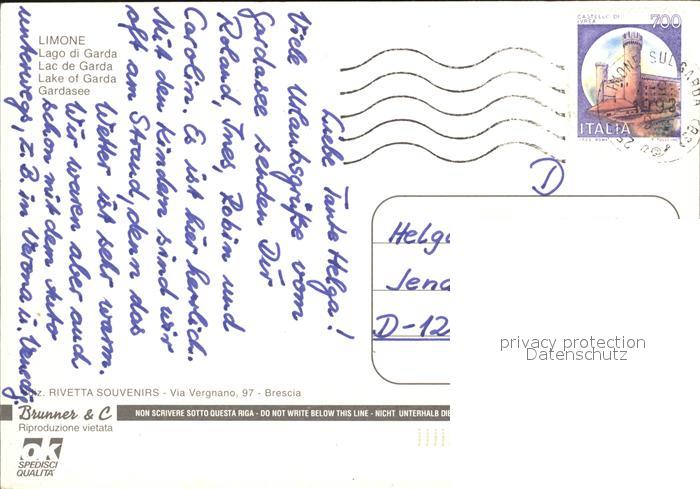 LIMONE
Lago di Garda
Lac de Garda
Lake of Garda
Gardasee
Liebe Tante Helga!
Viele Urlaubsgrüße vom
Gardasee senden Dir
Roland, Ines, Robin und
Carolin. Es ist hier herrlich.
Mit den Kindern sind wir
oft am Strand, denn das
Wetter ist sehr warm.
Wir waren aber auch
schon mit dem Auto
unterwegs, z.B. in Verona u. Venedig.
CASTELLO DI
IVREA
700
ITALIA
LIMONE SUL GARDA
D
Helga
Jena
D-12
privacy protection
Datenschutz
RIVETTA SOUVENIRS - Via Vergnano, 97 - Brescia
Brunner & C
NON SCRIVERE SOTTO QUESTA RIGA - DO NOT WRITE BELOW THIS LINE - NICHT UNTERHALB DIE
Riproduzione vietata
ok
SPEDISCI
QUALITÀ